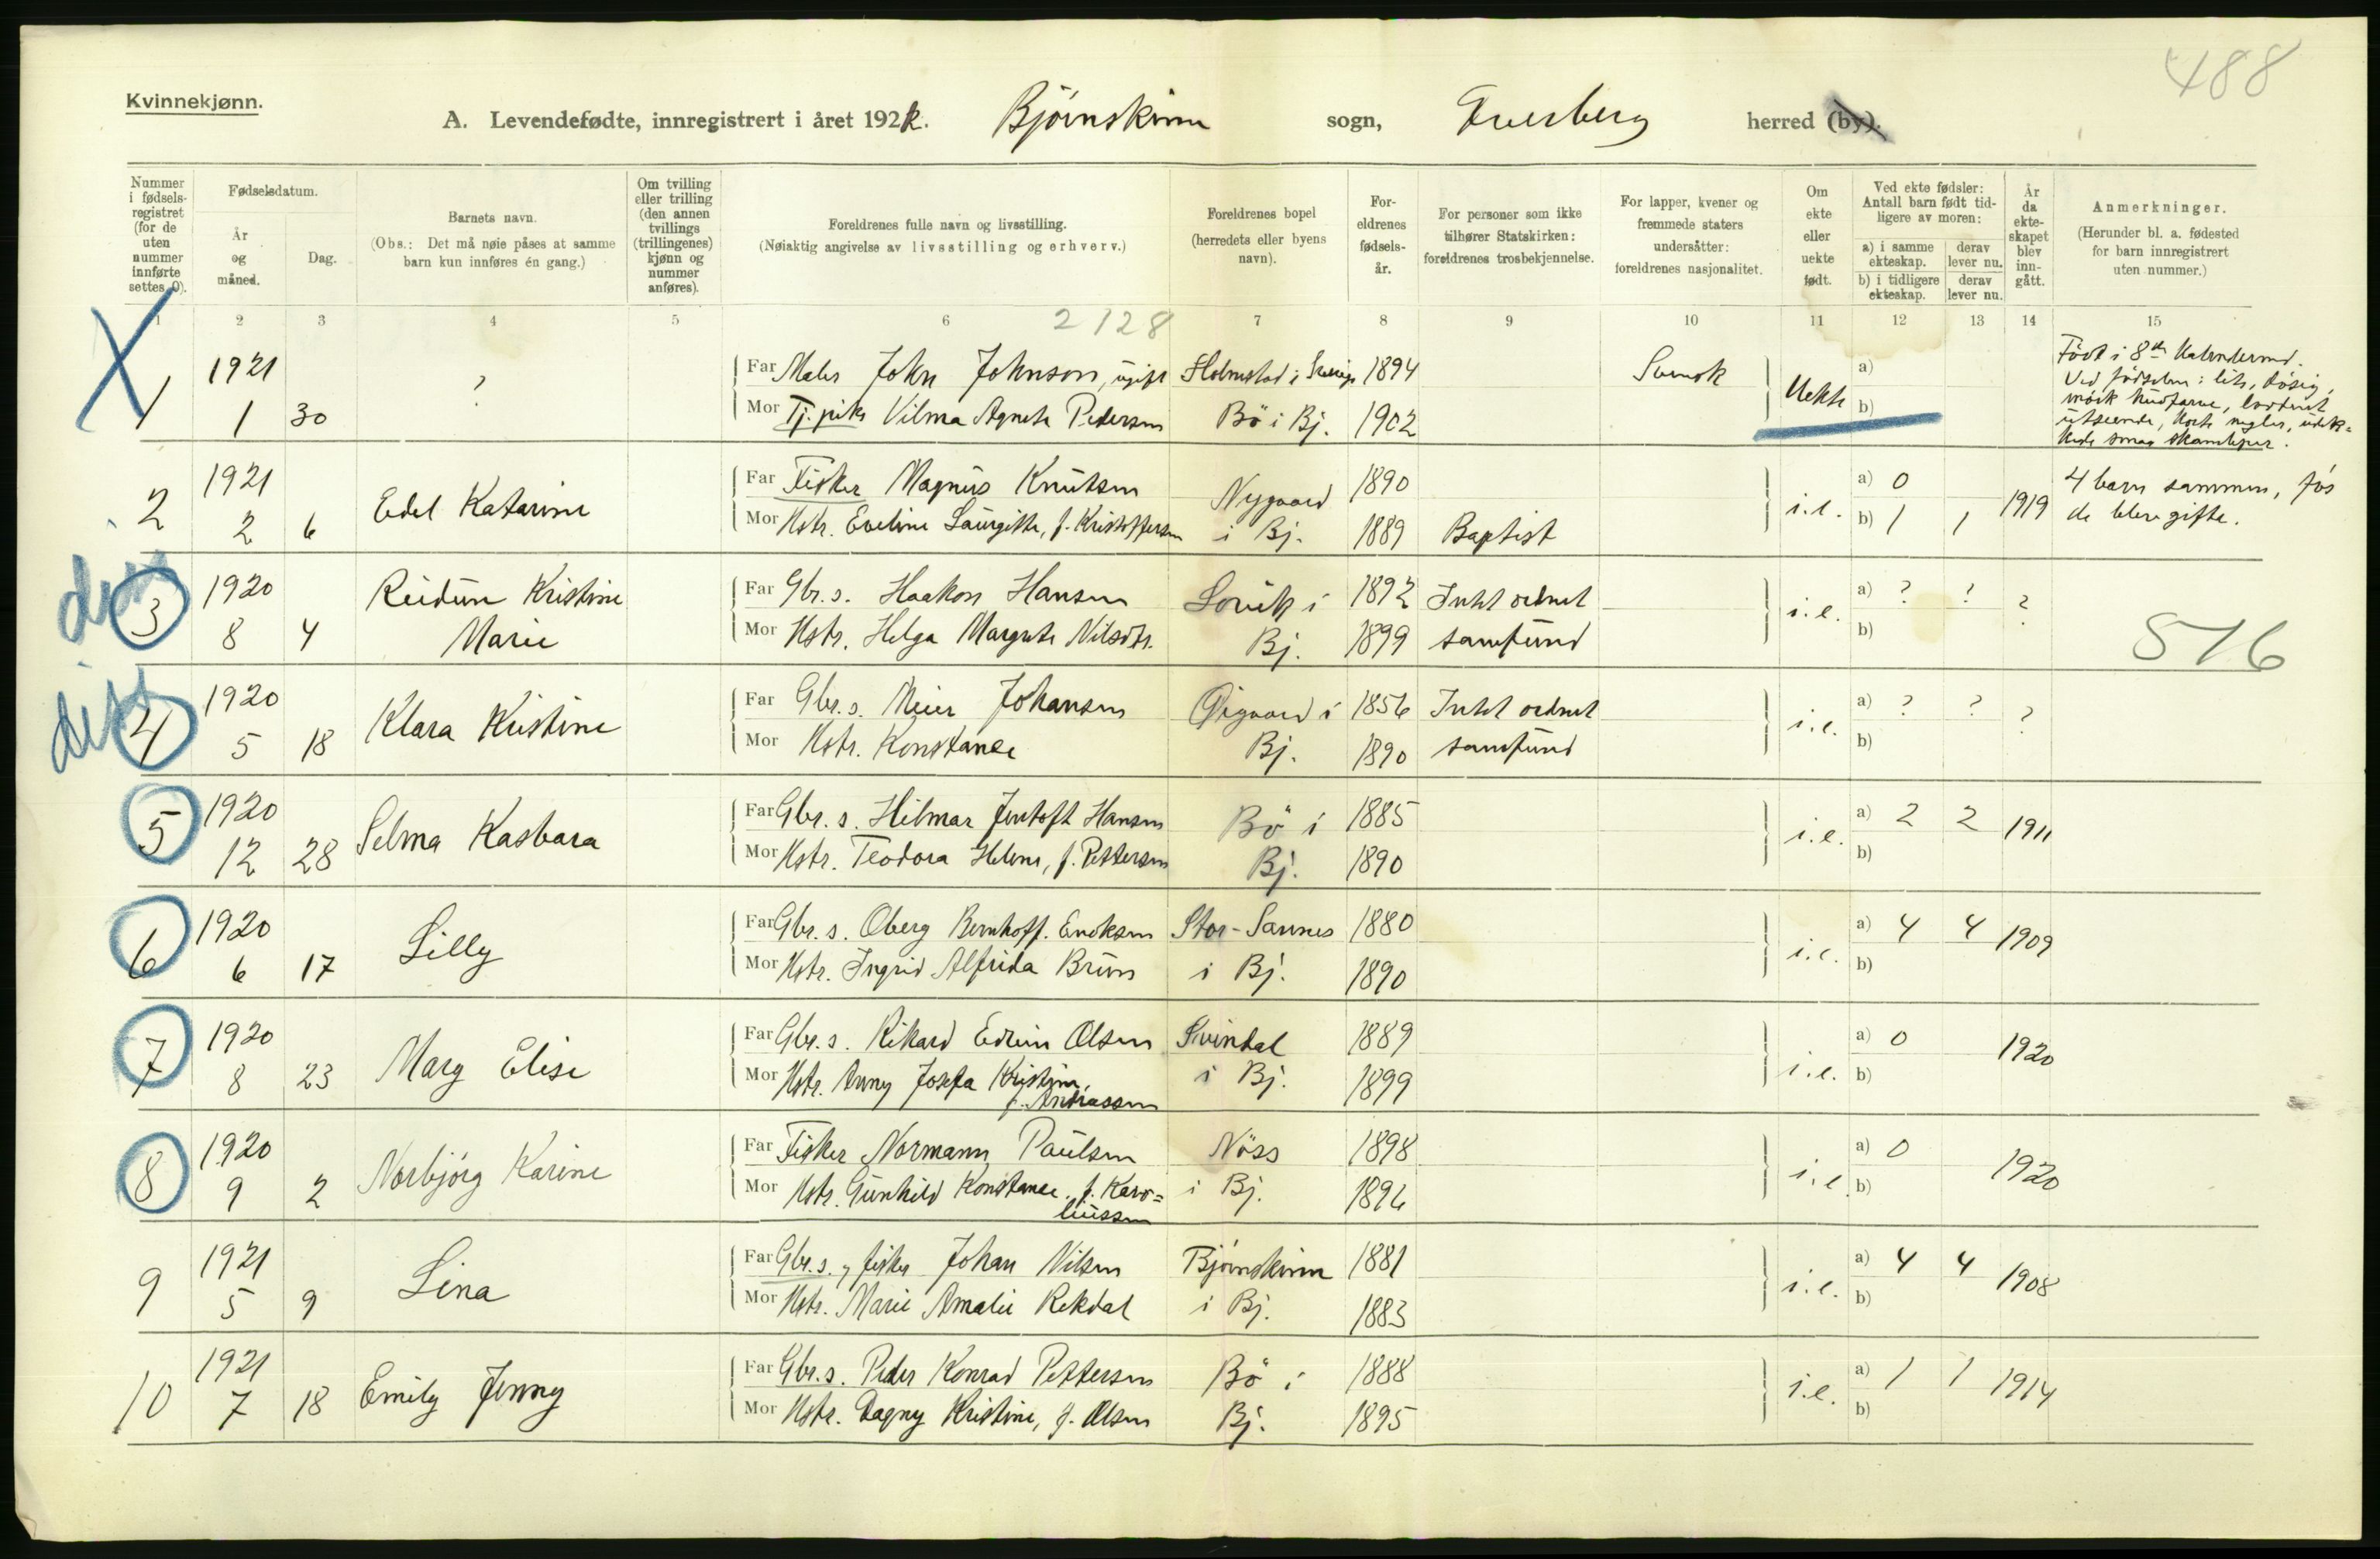 488
Kvinnekjønn.
A. Levendefødte, innregistrert i året 192 Bjørnskinn sogn, herred (by).
Nummer i fødsels-registret (for de uten nummer innførte settes 0).
Fødselsdatum.
År og måned.
Dag.
Barnets navn.
(Obs.: Det må nøie påses at samme barn kun innføres én gang.)
Om tvilling eller trilling (den annen tvillings (trillingenes) kjønn og nummer anføres).
Foreldrenes fulle navn og livsstilling.
(Nøiaktig angivelse av livsstilling og erhverv.)
Foreldrenes bopel (herredets eller byens navn).
For-eldrenes fødsels-år.
For personer som ikke tilhører Statskirken: foreldrenes trosbekjennelse.
For lapper, kvener og fremmede staters undersåtter: foreldrenes nasjonalitet.
Om ekte eller uekte født.
Ved ekte fødsler: Antall barn født tid-ligere av moren:
a) i samme ekteskap. derav lever nu.
b) i tidligere ekteskap. derav lever nu.
År da ekte-skapet blev inn-gått.
Anmerkninger.
(Herunder bl. a. fødested for barn innregistrert uten nummer.)
1 2 3 4 5 6 2128 7 8 9 10 11 12 13 14 15
X
1 1921 ? Far Maler John Johnson, ugift Halmstad i Sverige 1894 Svensk Uekte a)
1 30 Mor Tj. pike Vilma Agnete Pedersen Bö i Bj. 1902 b)
Født i 8de Kalendermd.
Ved fødselen: lite, døsig,
mörk hudfarve,
utseende, korte negler,
små
2 1921 Edel Katarine Far Fisker Magnus Knutsen Nygaard 1890 i.e. a) 0 1919 4 barn sammen, för
2 6 Mor Hstr. Eveline Laurgitte, f. Kristoffersen i Bj. 1889 Baptist b) 1 1 de blev gifte.
3 1920 Reidun Kristine Far Gbr.s. Haakon Hansen i 1892 Intet ordnet i.e. a) ? ? ?
8 4 Marie Mor Hstr. Helga Margrete Nilsdtr. Bj. 1899 samfund b)
576
4 1920 Klara Kristine Far Gbr.s. Meier Johansen Øigaard i 1856 Intet ordnet i.e. a) ? ? ?
5 18 Mor Hstr. Konstance Bj. 1890 samfund b)
5 1920 Selma Kasbara Far Gbr.s. Hilmar Jentoft Hansen Bö i 1885 i.e. a) 2 2 1911
12 28 Mor Hstr. Teodora Helene, f. Pettersen Bj. 1890 b)
6 1920 Lilly Far Gbr.s. Oberg Bernhoff. Enoksen Stor-Sannes 1880 i.e. a) 4 4 1909
6 17 Mor Hstr. Ingrid Alfrida Bruun i Bj. 1890 b)
7 1920 Marg Elise Far Gbr.s. Rikard Edvin Olsen Svindal 1889 i.e. a) 0 1920
8 23 Mor Hstr. Anny Josefa Kristine, i Bj. 1899 b)
f. Andreassen
8 1920 Norbjörg Karine Far Fisker Normann Paulsen Nöss 1898 i.e. a) 0 1920
9 2 Mor Hstr. Gunhild Konstance, f. Karo= i Bj. 1896 b)
liussen
9 1921 Lina Far Gbr.s., fisker Johan Nilsen Bjørnskinn 1881 i.e. a) 4 4 1908
5 9 Mor Hstr. Marie Amalie Rekdal i Bj. 1883 b)
10 1921 Emily Jenny Far Gbr.s. Peder Konrad Pettersen Bö i 1888 i.e. a) 1 1 1914
7 18 Mor Hstr. Dagny Kristine, f. Olsen Bj. 1895 b)